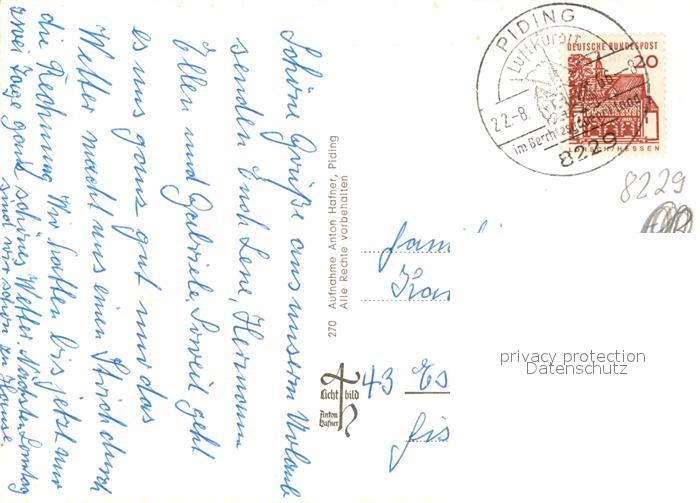 Schöne Grüße aus unserm Urlaub
senden Euch Lene, Hermann
Ellen und Gabriele. Soweit geht
es uns ganz gut nur das
Wetter macht uns einen Strich durch
die Rechnung. Wir hatten bis jetzt nur
zwei Tage ganz schönes Wetter. Nächsten Sonntag
sind wir schon zu Hause.
270 Aufnahme Anton Hafner, Piding
Alle Rechte vorbehalten
Licht bild
Anton Hafner
PIDING
Luftkurort
22.-8.
im Berchtesgadener Land
8229
DEUTSCHE BUNDESPOST
20
LORSCH/HESSEN
8229
Fami
43 Es
privacy protection
Datenschutz